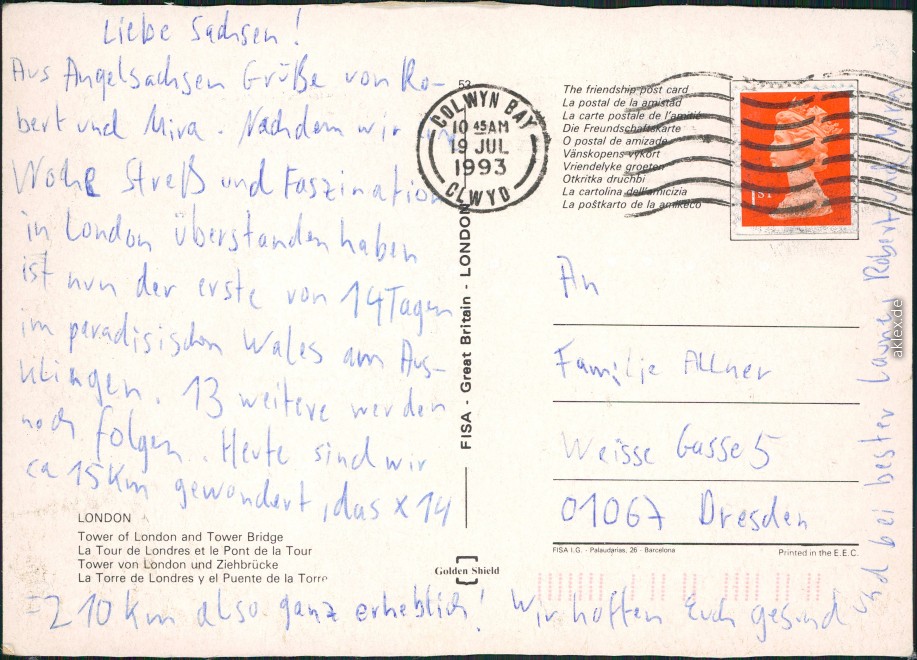 Liebe Sachsen!
Aus Angelsachsen Grüße von Ro-
bert und Mira. Nachdem wir
Woche Streß und Faszination
in London überstanden haben
ist nun der erste von 14 Tagen
im paradisischen Wales am Aus-
klingen. 13 weitere werden
noch folgen. Heute sind wir
ca 15 Km gewandert, das x 14
= 210 km also ganz erheblich! Wir hoffen Euch gesund
und bei bester Laune Robert und Mira
LONDON
Tower of London and Tower Bridge
La Tour de Londres et le Pont de la Tour
Tower von London und Ziehbrücke
La Torre de Londres y el Puente de la Torre
53
FISA - Great Britain - LONDON
Golden Shield
COLWYN BAY
10 45AM
19 JUL
1993
CLWYD
The friendship post card
La postal de la amistad
La carte postale de l'amitié
Die Freundschaftskarte
O postal de amizade
Vänskopens vykort
Vriendelyke groeten
Otkritka druchbi
La cartolina dell'amicizia
La poštkarto de la amikeco
1ST
An
Familie Allner
Weisse Gasse 5
01067 Dresden
FISA I.G. - Palaudarias, 26 - Barcelona
Printed in the E.E.C.
aklex.de